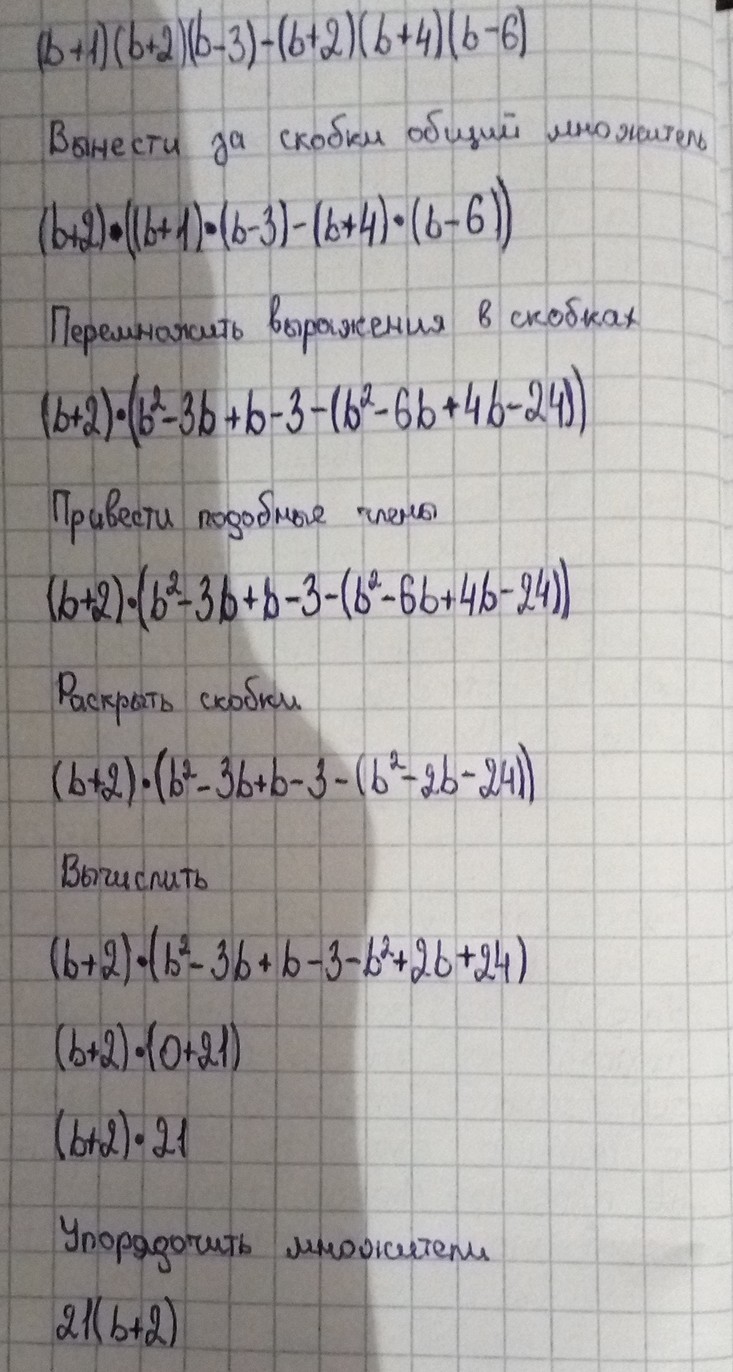 (b+1)(b+2)(b-3)-(b+2)(b+4)(b-6)
Вынести за скобки общий множитель
(b+2)•((b+1)•(b-3)-(b+4)•(b-6))
Перемножить выражения в скобках
(b+2)•(b²-3b+b-3-(b²-6b+4b-24))
Привести подобные члены
(b+2)•(b²-3b+b-3-(b²-6b+4b-24))
Раскрыть скобки
(b+2)•(b²-3b+b-3-(b²-2b-24))
Вычислить
(b+2)•(b²-3b+b-3-b²+2b+24)
(b+2)•(0+21)
(b+2)•21
Упорядочить множители
21(b+2)